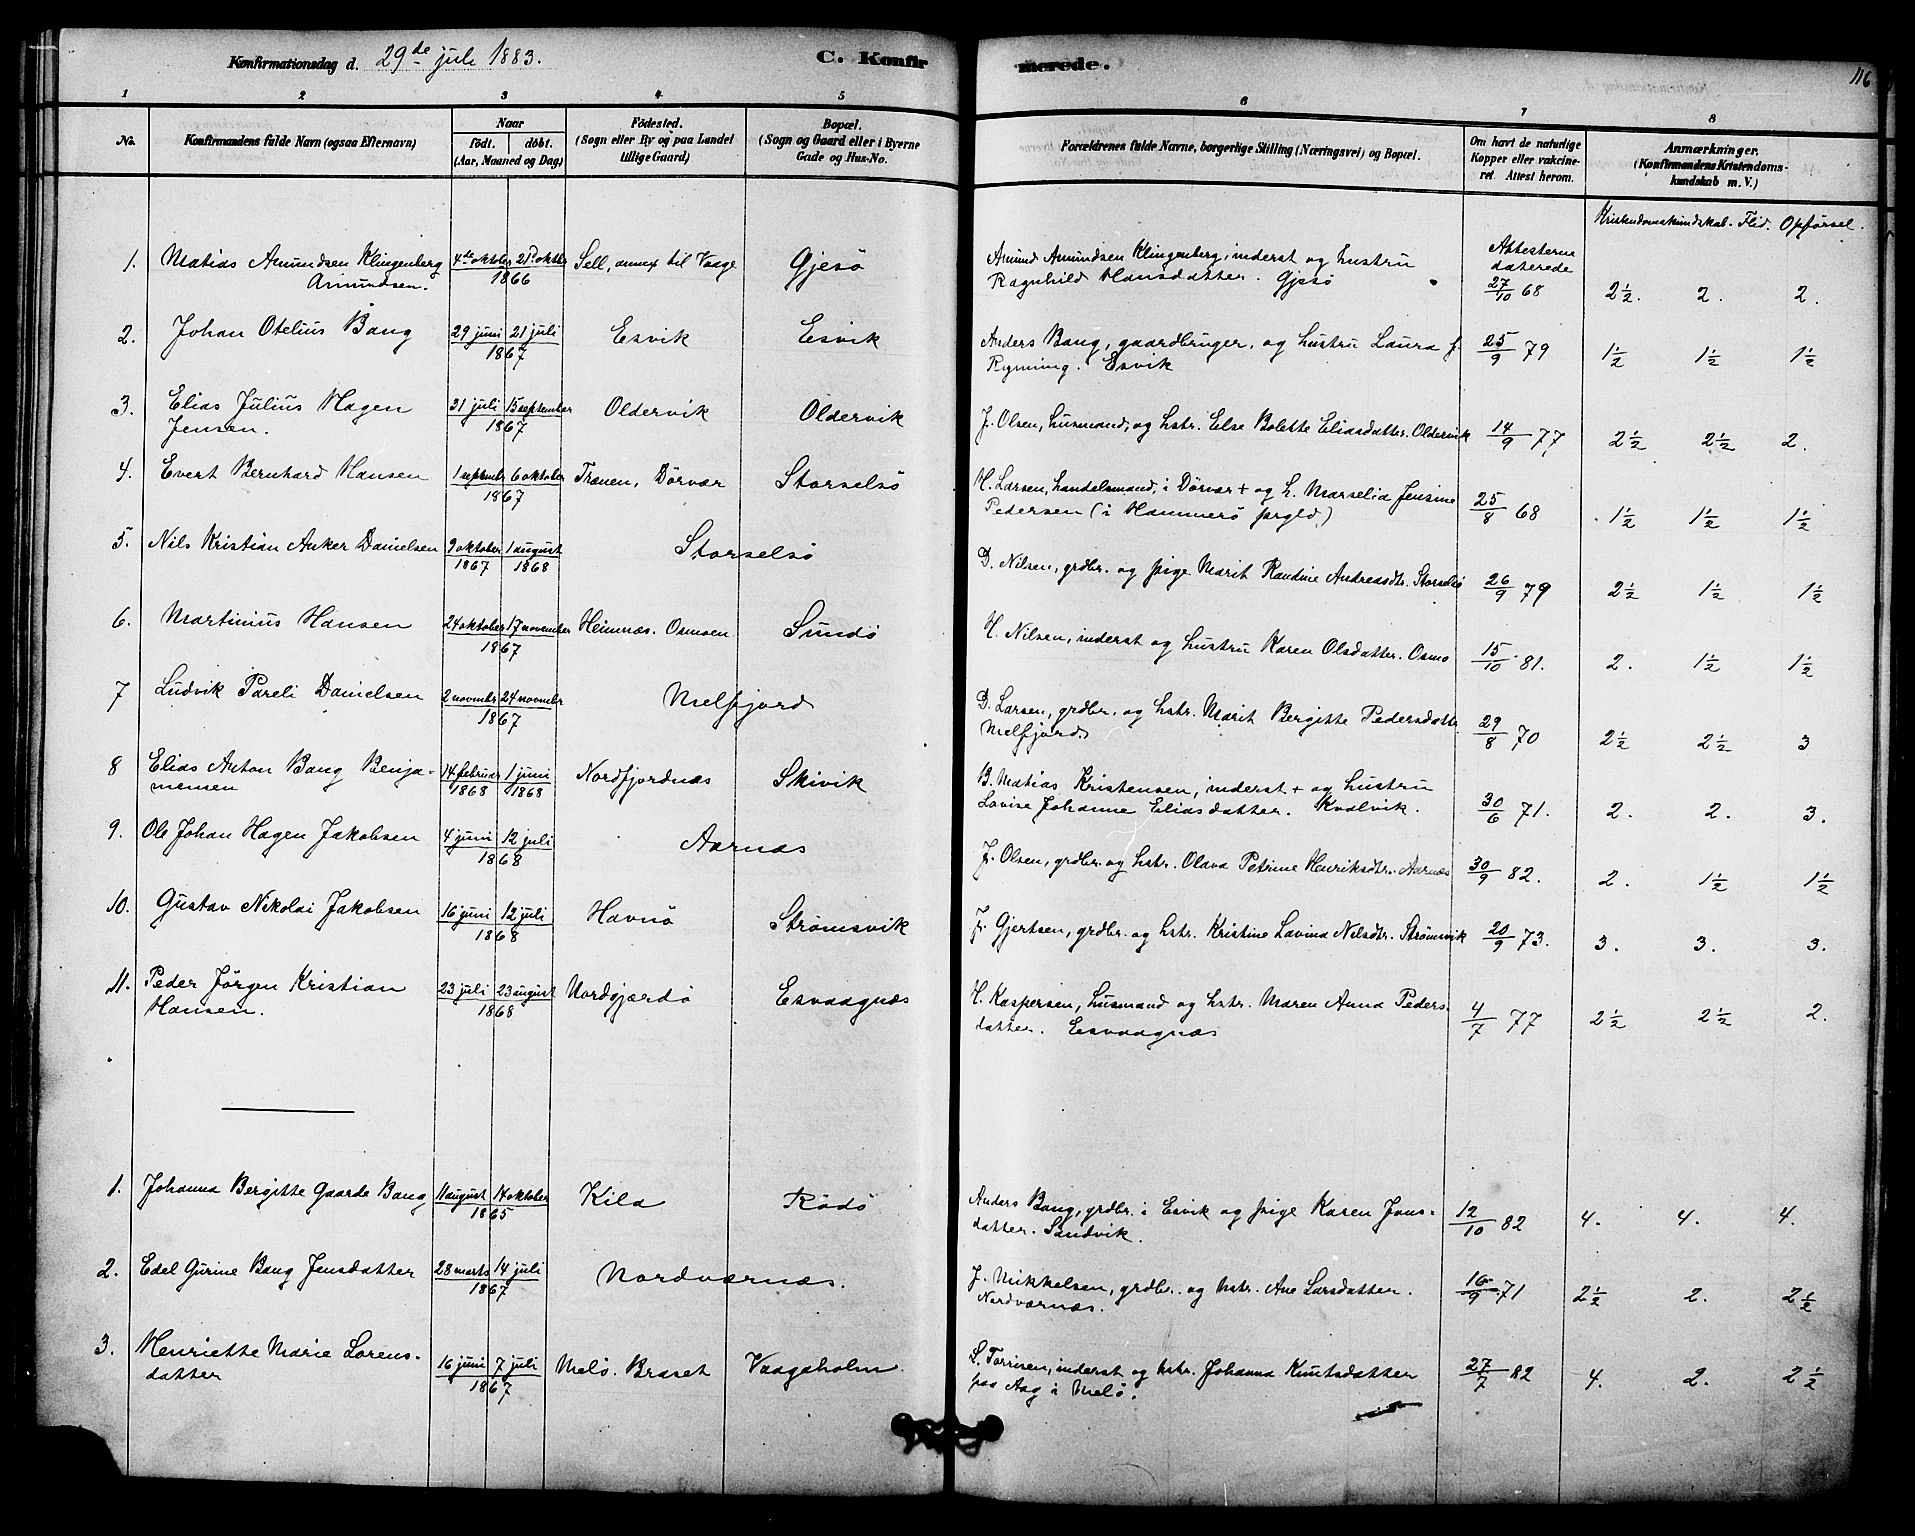 Konfirmationsdag d. 29de juli 1883.
C. Konfirmerede.
116
1 2 3 4 5 6 7 8
No.
Konfirmandens fulde Navn (ogsaa Efternavn)
Naar
födt. döbt.
(Aar, Maaned og Dag)
Födested.
(Sogn eller By og paa Landet
tillige Gaard)
Bopæl.
(Sogn og Gaard eller i Byerne
Gade og Hus-No.
Forældrenes fulde Navne, borgerlige Stilling (Næringsvei) og Bopæl.
Om havt de naturlige
Kopper eller vakcine-
ret. Attest herom.
Anmærkninger.
(Konfirmandens Kristendoms-
kundskab m. V.)
Kristendomskundskab. Flid. Opförsel.
Attesterne
daterede
1. Matias Amundsen Klingenberg 4de oktober 21de oktbr Sell, annex til Vaage Gjesö Amund Amundsen Klingenberg, inderst og hustru
Amundsen. 1866 Ragnhild Hansdatter. Gjesö 27/10 68 2½. 2. 2.
2. Johan Otelius Bang 29 juni 21 juli Esvik Esvik Anders Bang, gaardbruger, og hustru Laura f. 25/9 79 1½ 1½ 1½
1867 Rynning. Esvik
3. Elias Julius Hagen 31 juli 15 september Oldervik Oldervik J. Olsen, husmand, og hstr. Else Bolette Eliasdatter. Oldervik 14/9 77 2½ 2½ 2.
Jensen. 1867
4. Evert Bernhard Hansen 1 septembr 6 oktober Trænen, Dörvær Storselsö H. Larsen, handelsmand, i Dörvær + og h. Marselia Jensine 25/8 68 1½ 1½ 1½
1867 Pedersen (i Hammerö prgld)
5. Nils Kristian Anker Danielsen 9 oktober 1 august Storselsö D. Nilsen, grdbr. og pige Marit Randine Andreasdtr. Storselsö 26/9 79 2½ 1½ 1½
1867 1868
6. Martinius Hansen 24 oktober 17 november Heimnæs. Osmoen Sundö H. Nilsen, inderst og hustru Karen Olsdatter. Osmo 15/10 81. 2. 1½ 1½
1867
7 Ludvik Pareli Danielsen 2 novembr 24 novembr Melfjord D. Larsen, grdbr. og hstr. Marit Bergitte Pedersdatt.
1867 Melfjord 29/8 70 2½ 2½ 3
8 Elias Anton Bang Benja- 14 februar 1 juni Nordfjordnæs Skivik B. Matias Kristensen, inderst + og hustru
mensen 1868 1868 Lovise Johanne Eliasdatter. Kvalvik. 30/6 71. 2. 2. 3.
9. Ole Johan Hagen Jakobsen 4 juni 12 juli Aarnæs J. Olsen, grdbr. og hstr. Olava Petrine Henriksdtr. Aarnæs 30/9 82. 2. 1½ 1½
1868
10. Gustav Nikolai Jakobsen 16 juni 12 juli Havnö Strömsvik J. Gjertsen, grdbr. og hstr. Kristine Lavina Nilsdtr. Strömsvik 20/9 73. 3. 3. 3.
1868
11. Peder Jörgen Kristian 23 juli 23 august Nordgjærdö Esvaagnæs H. Kaspersen, husmand og hstr. Maren Anna Peders-
Hansen. 1868 datter. Esvaagnæs 4/7 77 2½ 2½ 2.
1. Johanna Bergitte Gaarde Bang 11 august 14 oktober Kila Rödö Anders Bang, grdbr. i Esvik og pige Karen Jons-
1865 datter. Sandvik. 12/10 82 4. 4. 4.
2. Edel Gurine Bang Jensdatter 28 marts 14 juli Nordværnæs. J. Mikkelsen, grdbr. og hstr. Ane Larsdatter.
1867 Nordværnæs. 16/9 71 2½ 2. 2½
3. Henriette Marie Lorens- 16 juni 7 juli Melö. Braset Vaagaholm L. Torrisen, inderst og hstr. Johanna Knutsdatter 27/7 82 4. 2. 2½
datter 1867 paa Aag i Melö.